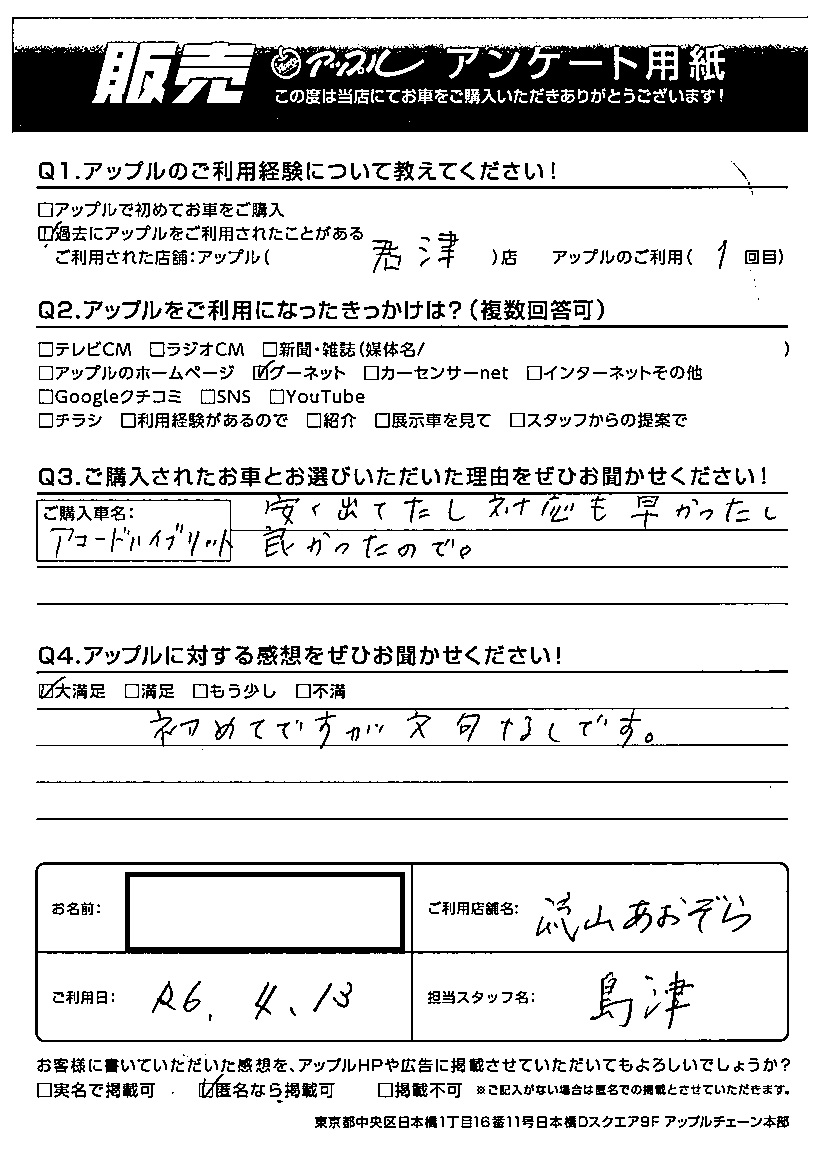 販売 アップル アンケート用紙
この度は当店にてお車をご購入いただきありがとうございます!
Q1.アップルのご利用経験について教えてください!
□アップルで初めてお車をご購入
☑過去にアップルをご利用されたことがある
ご利用された店舗:アップル( 君津 )店 アップルのご利用( 1 回目)
Q2.アップルをご利用になったきっかけは?(複数回答可)
□テレビCM □ラジオCM □新聞・雑誌(媒体名/ )
□アップルのホームページ ☑グーネット □カーセンサーnet □インターネットその他
□Googleクチコミ □SNS □YouTube
□チラシ □利用経験があるので □紹介 □展示車を見て □スタッフからの提案で
Q3.ご購入されたお車とお選びいただいた理由をぜひお聞かせください!
ご購入車名: 安く出てたし 対応も早かったし
アコードハイブリット 良かったので。
Q4.アップルに対する感想をぜひお聞かせください!
☑大満足 □満足 □もう少し □不満
初めてですが文句なしです。
お名前: ご利用店舗名: 流山あおぞら
ご利用日: R6. 4. 13 担当スタッフ名: 島津
お客様に書いていただいた感想を、アップルHPや広告に掲載させていただいてもよろしいでしょうか?
□実名で掲載可 ☑匿名なら掲載可 □掲載不可 ※ご記入がない場合は匿名での掲載とさせていただきます。
東京都中央区日本橋1丁目16番11号日本橋Dスクエア9F アップルチェーン本部